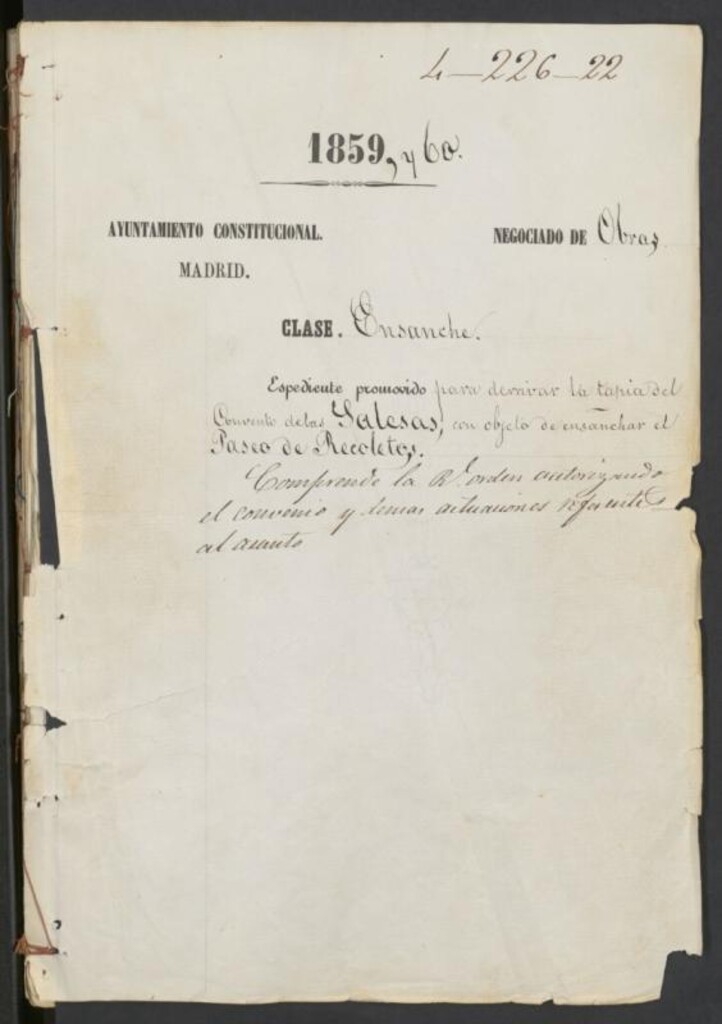 4—226—22
1859, y 60.
AYUNTAMIENTO CONSTITUCIONAL.
MADRID.
NEGOCIADO DE Obras
CLASE. Ensanche.
Espediente promovido para derrivar la tapia del
Convento de las Salesas, con objeto de ensanchar el
Paseo de Recoletos.
Comprende la Rl. orden autorizando
el convenio y demas actuaciones referentes
al asunto